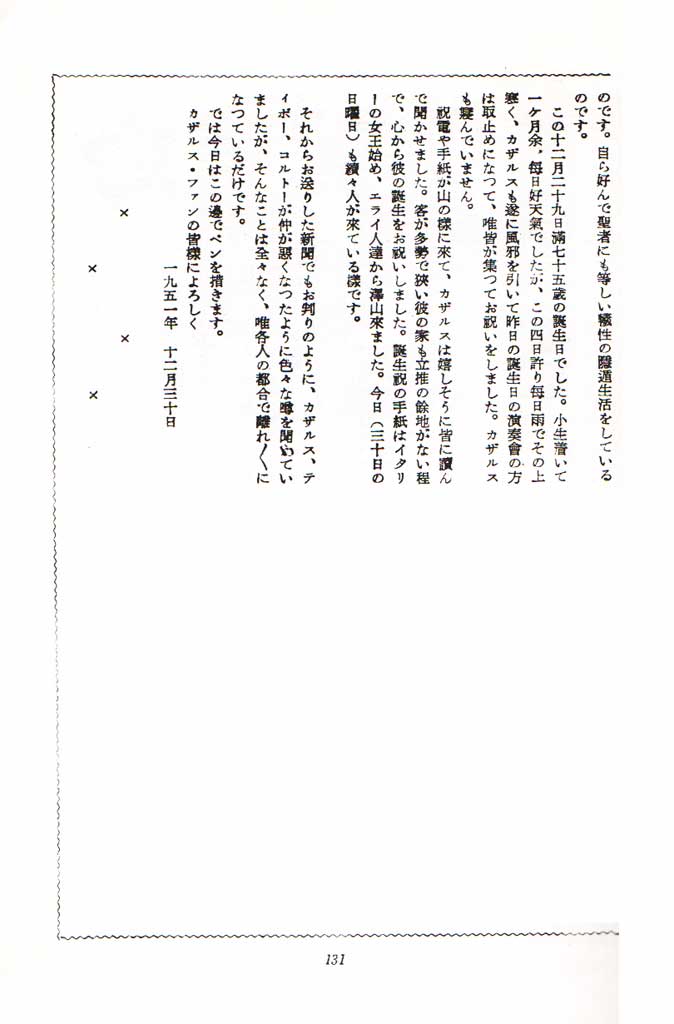 のです。自ら好んで聖者にも等しい犠性の隠遁生活をしている
のです。
この十二月二十九日滿七十五歳の誕生日でした。小生着いて
一ケ月余、毎日好天氣でしたが、この四日許り毎日雨でその上
寒く、カザルスも遂に風邪を引いて昨日の誕生日の演奏會の方
は取止めになつて、唯皆が集つてお祝いをしました。カザルス
も寢んでいません。
祝電や手紙が山の樣に來て、カザルスは嬉しそうに皆に讀ん
で聞かせました。客が多勢で狹い彼の家も立推の餘地がない程
で、心から彼の誕生をお祝いしました。誕生祝の手紙はイタリ
ーの女王始め、エライ人達から澤山來ました。今日（三十日の
日曜日）も續々人が來ている樣です。
それからお送りした新聞でもお判りのように、カザルス、テ
ィボー、コルトーが仲が惡くなつたように色々な噂を聞いてい
ましたが、そんなことは全々なく、唯各人の都合で離れ〳〵に
なつているだけです。
では今日はこの邊でペンを措きます。
カザルス・ファンの皆樣によろしく
一九五一年　十二月三十日
×
×
×
×
131